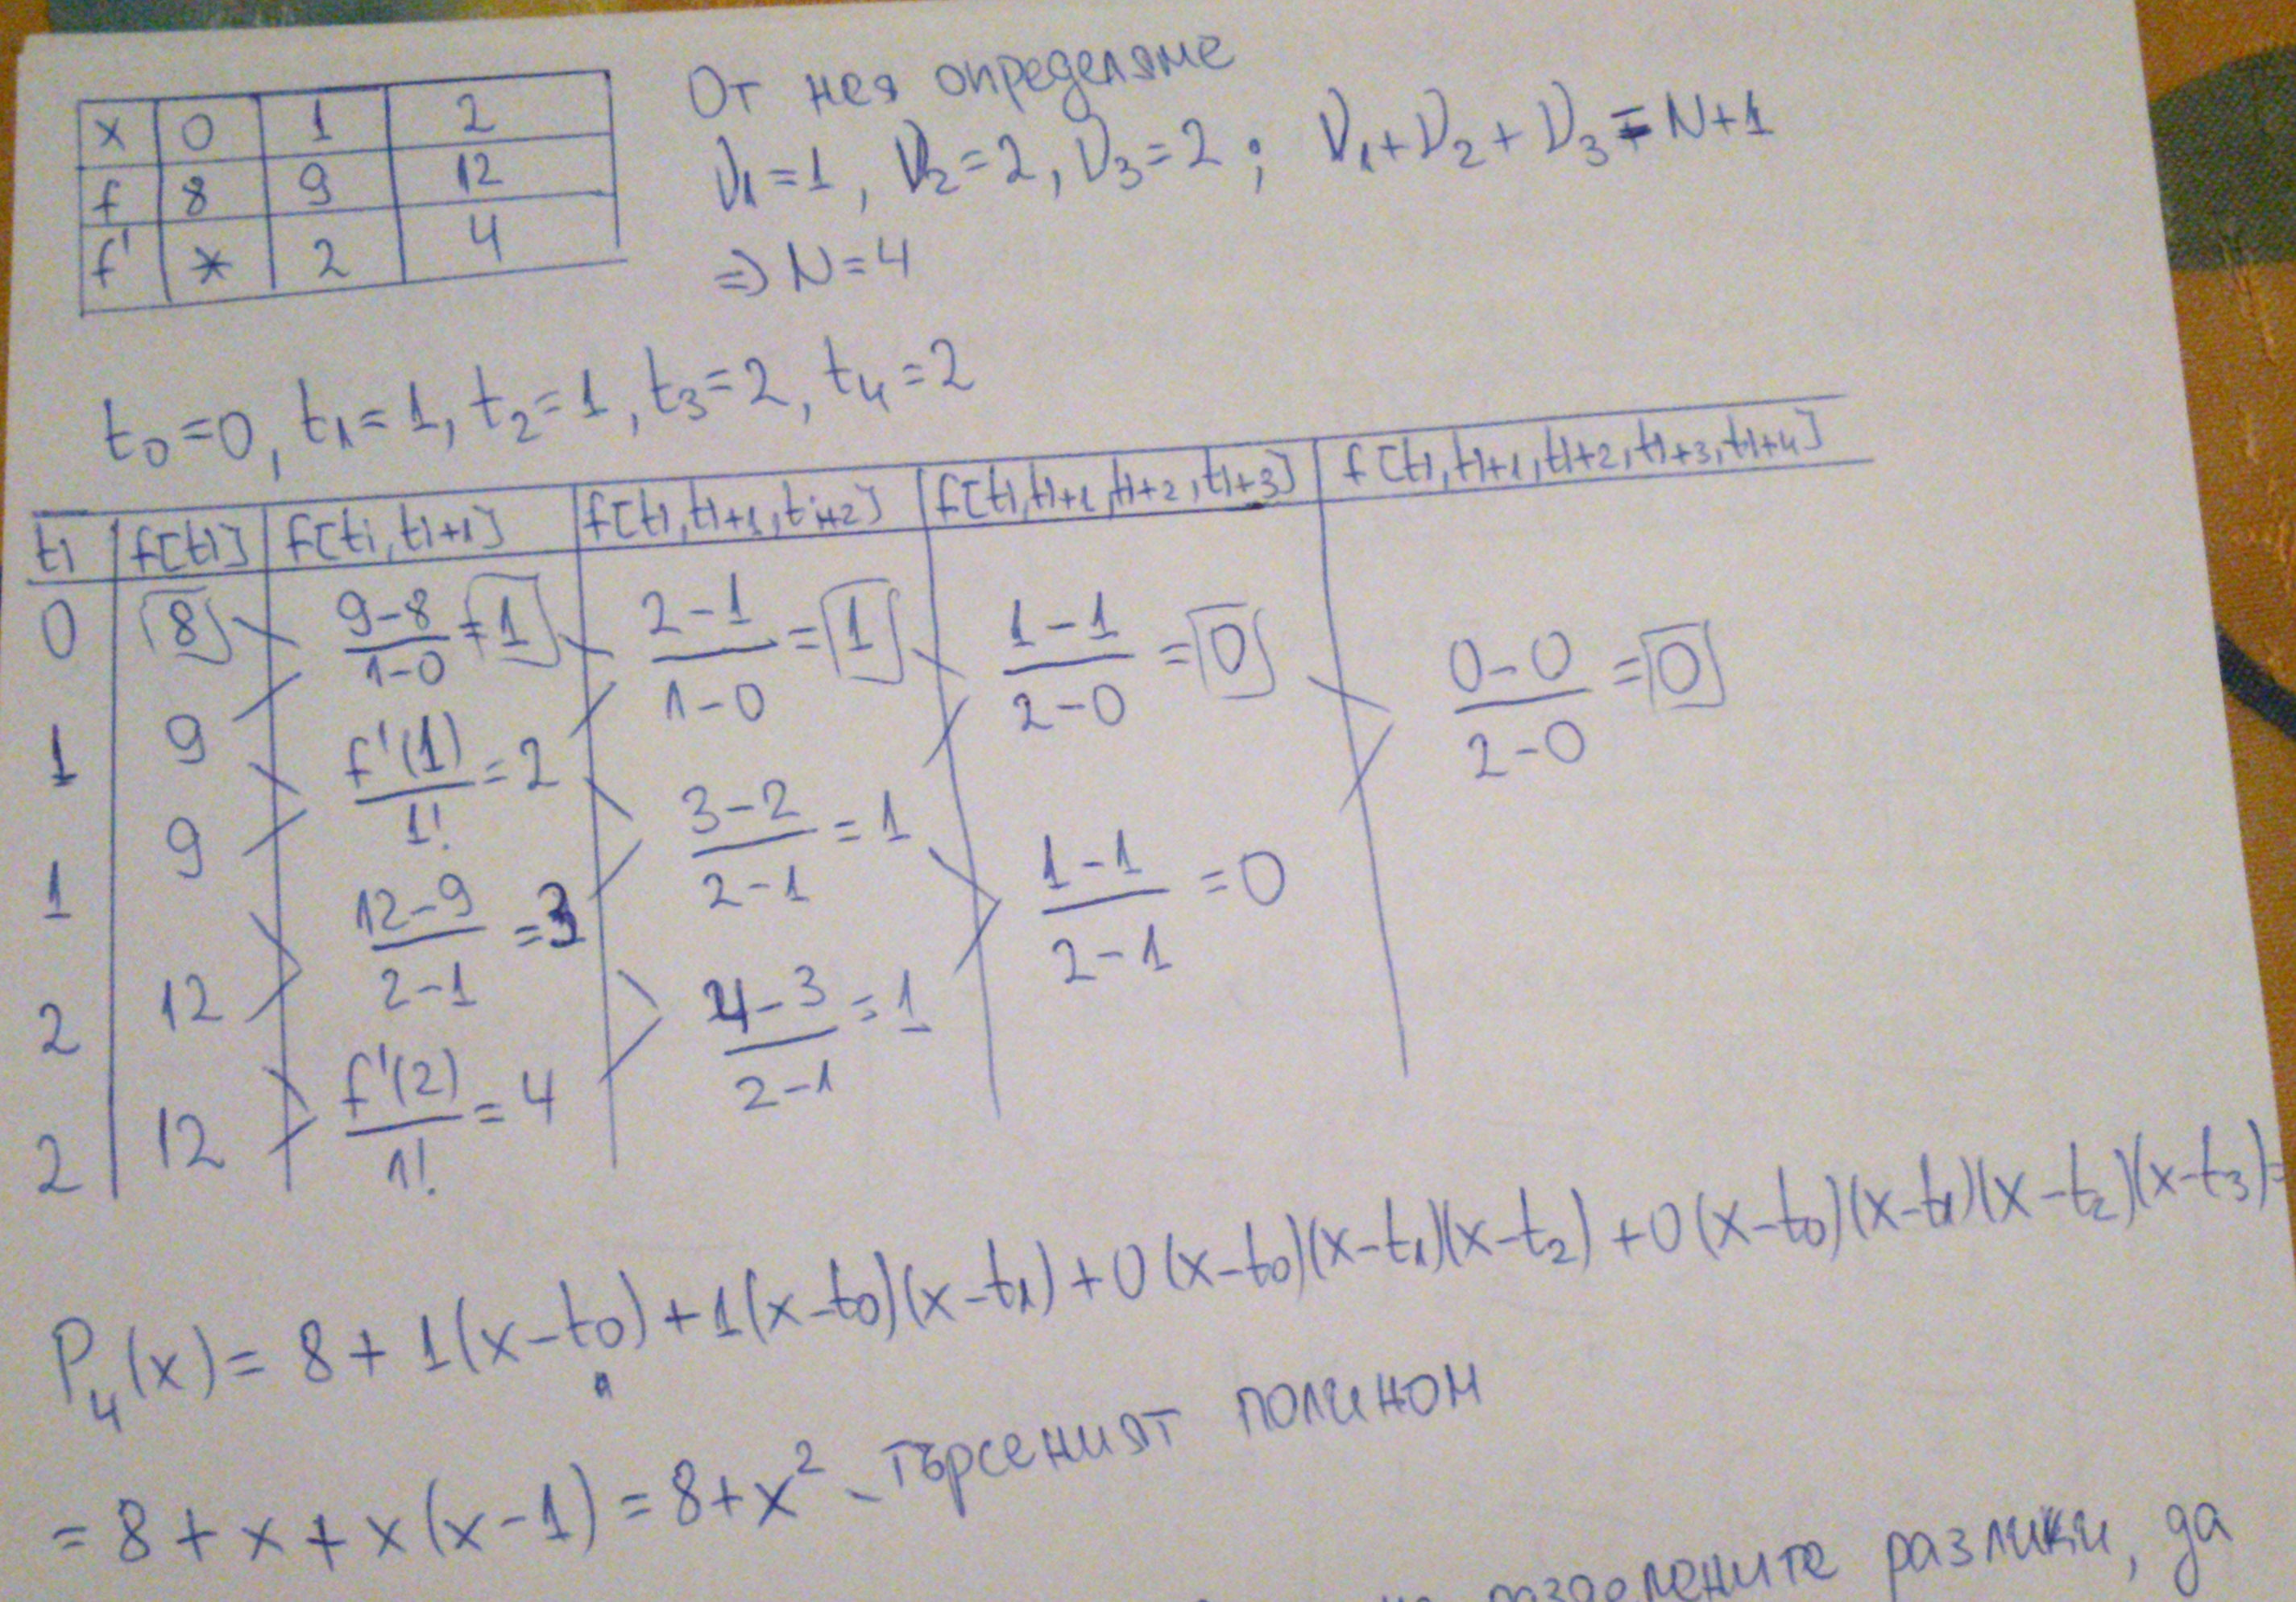 x 0 1 2
f 8 9 12
f' * 2 4
От нея определяме
ν₁=1, ν₂=2, ν₃=2; ν₁+ν₂+ν₃=N+1
=> N=4
t₀=0, t₁=1, t₂=1, t₃=2, t₄=2
ti f[ti] f[ti, ti+1] f[ti, ti+1, ti+2] f[ti, ti+1, ti+2, ti+3] f[ti, ti+1, ti+2, ti+3, ti+4]
0 8 (9-8)/(1-0)=1 (2-1)/(1-0)=1 (1-1)/(2-0)=0 (0-0)/(2-0)=0
1 9 f'(1)/1!=2 (3-2)/(2-1)=1 (1-1)/(2-1)=0
1 9 (12-9)/(2-1)=3 (4-3)/(2-1)=1
2 12 f'(2)/1!=4
2 12
P₄(x)=8+1(x-t₀)+1(x-t₀)(x-t₁)+0(x-t₀)(x-t₁)(x-t₂)+0(x-t₀)(x-t₁)(x-t₂)(x-t₃)=
=8+x+x(x-1)=8+x² - търсеният полином
разделените разлики, да